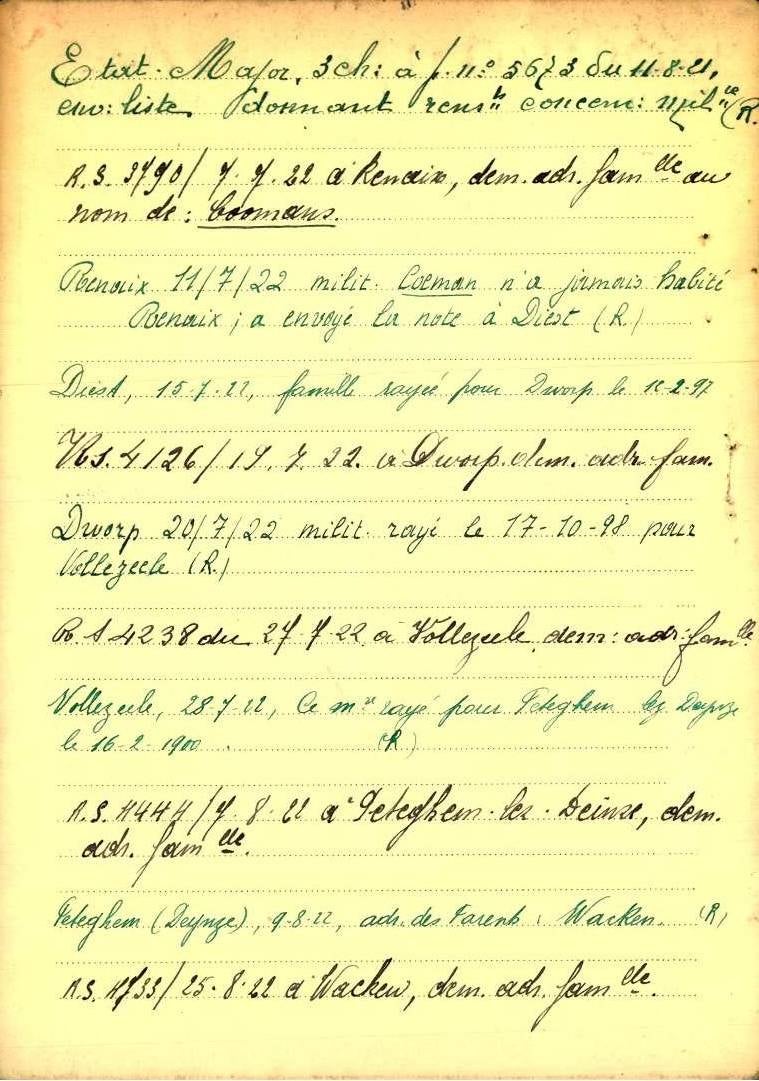 Etat-Major, 3 ch: à f. n° 5673 du 11-8-21,
env: liste donnant rens ts concern: milre (R.
R.S. 3790/ 7.7.22 à Renaix, dem. adr. famille au
nom de: Coomans.
Renaix 11/7/22 milit. Coeman n'a jamais habité
Renaix; a envoyé la note à Diest (R.)
Diest, 15-7-22, famille rayée pour Dworp le 12-2-97
RS. 4126/19.7.22. à Dworp. dem. adr. fam.
Dworp 20/7/22 milit. rayé le 17-10-98 pour
Vollezeele (R.)
R.S 4238 du 27-7-22 à Vollezeele, dem: adr: famille.
Vollezeele, 28-7-22, Ce mre rayé pour Peteghem lez Deynze
le 16-2-1900. (R)
R.S. 4444/7.8.22 à Peteghem-lez-Deinze, dem.
adr. famille.
Peteghem (Deynze), 9-8-22, adr. des Parents: Wacken. (R)
R.S. 4733/25.8.22 à Wacken, dem. adr. famille.